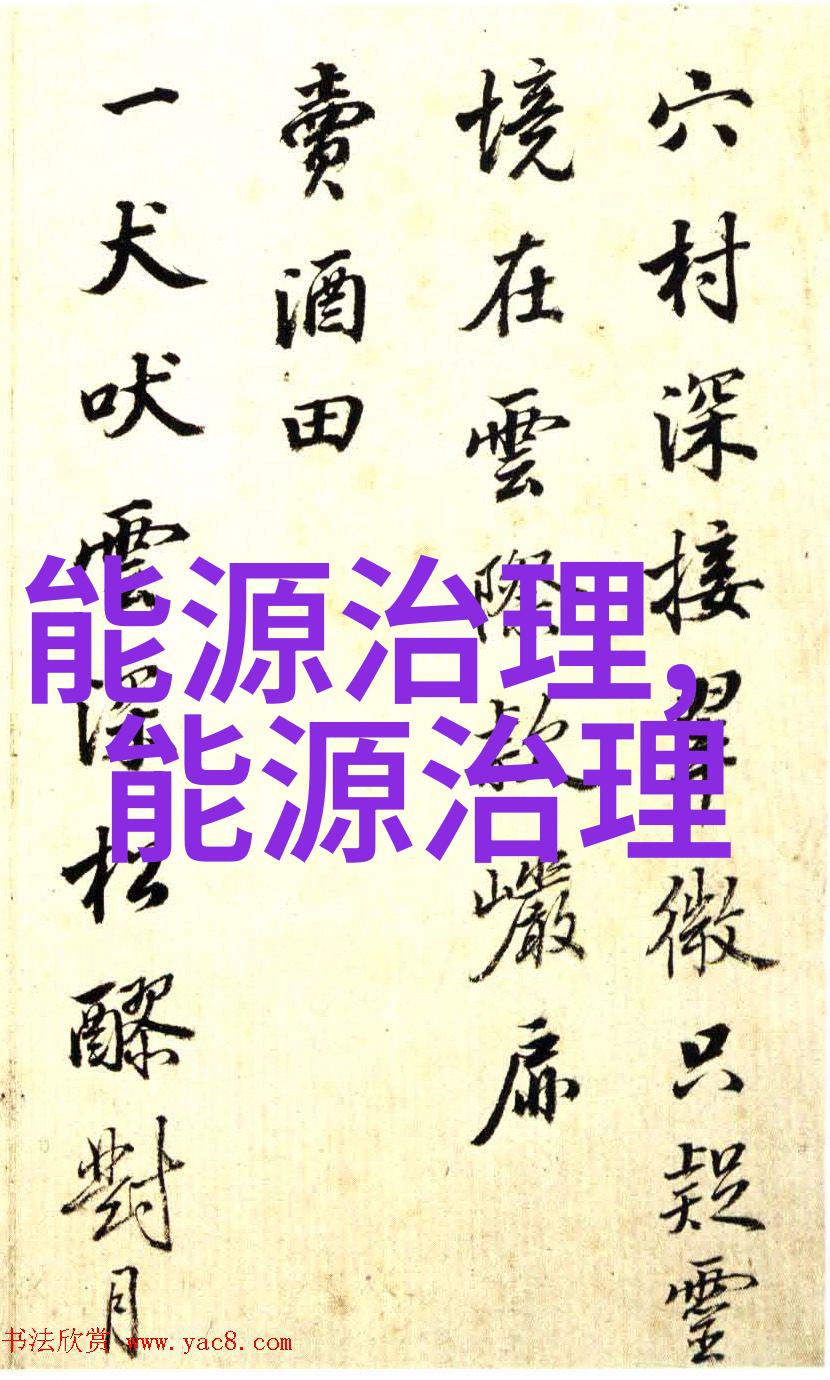 穴村深接翠微只疑靈
境在雲際款巖扉
賣酒田
一犬吠雲深松醪對月
能源治理,
能源治理
书法欣赏 www.yac8.com